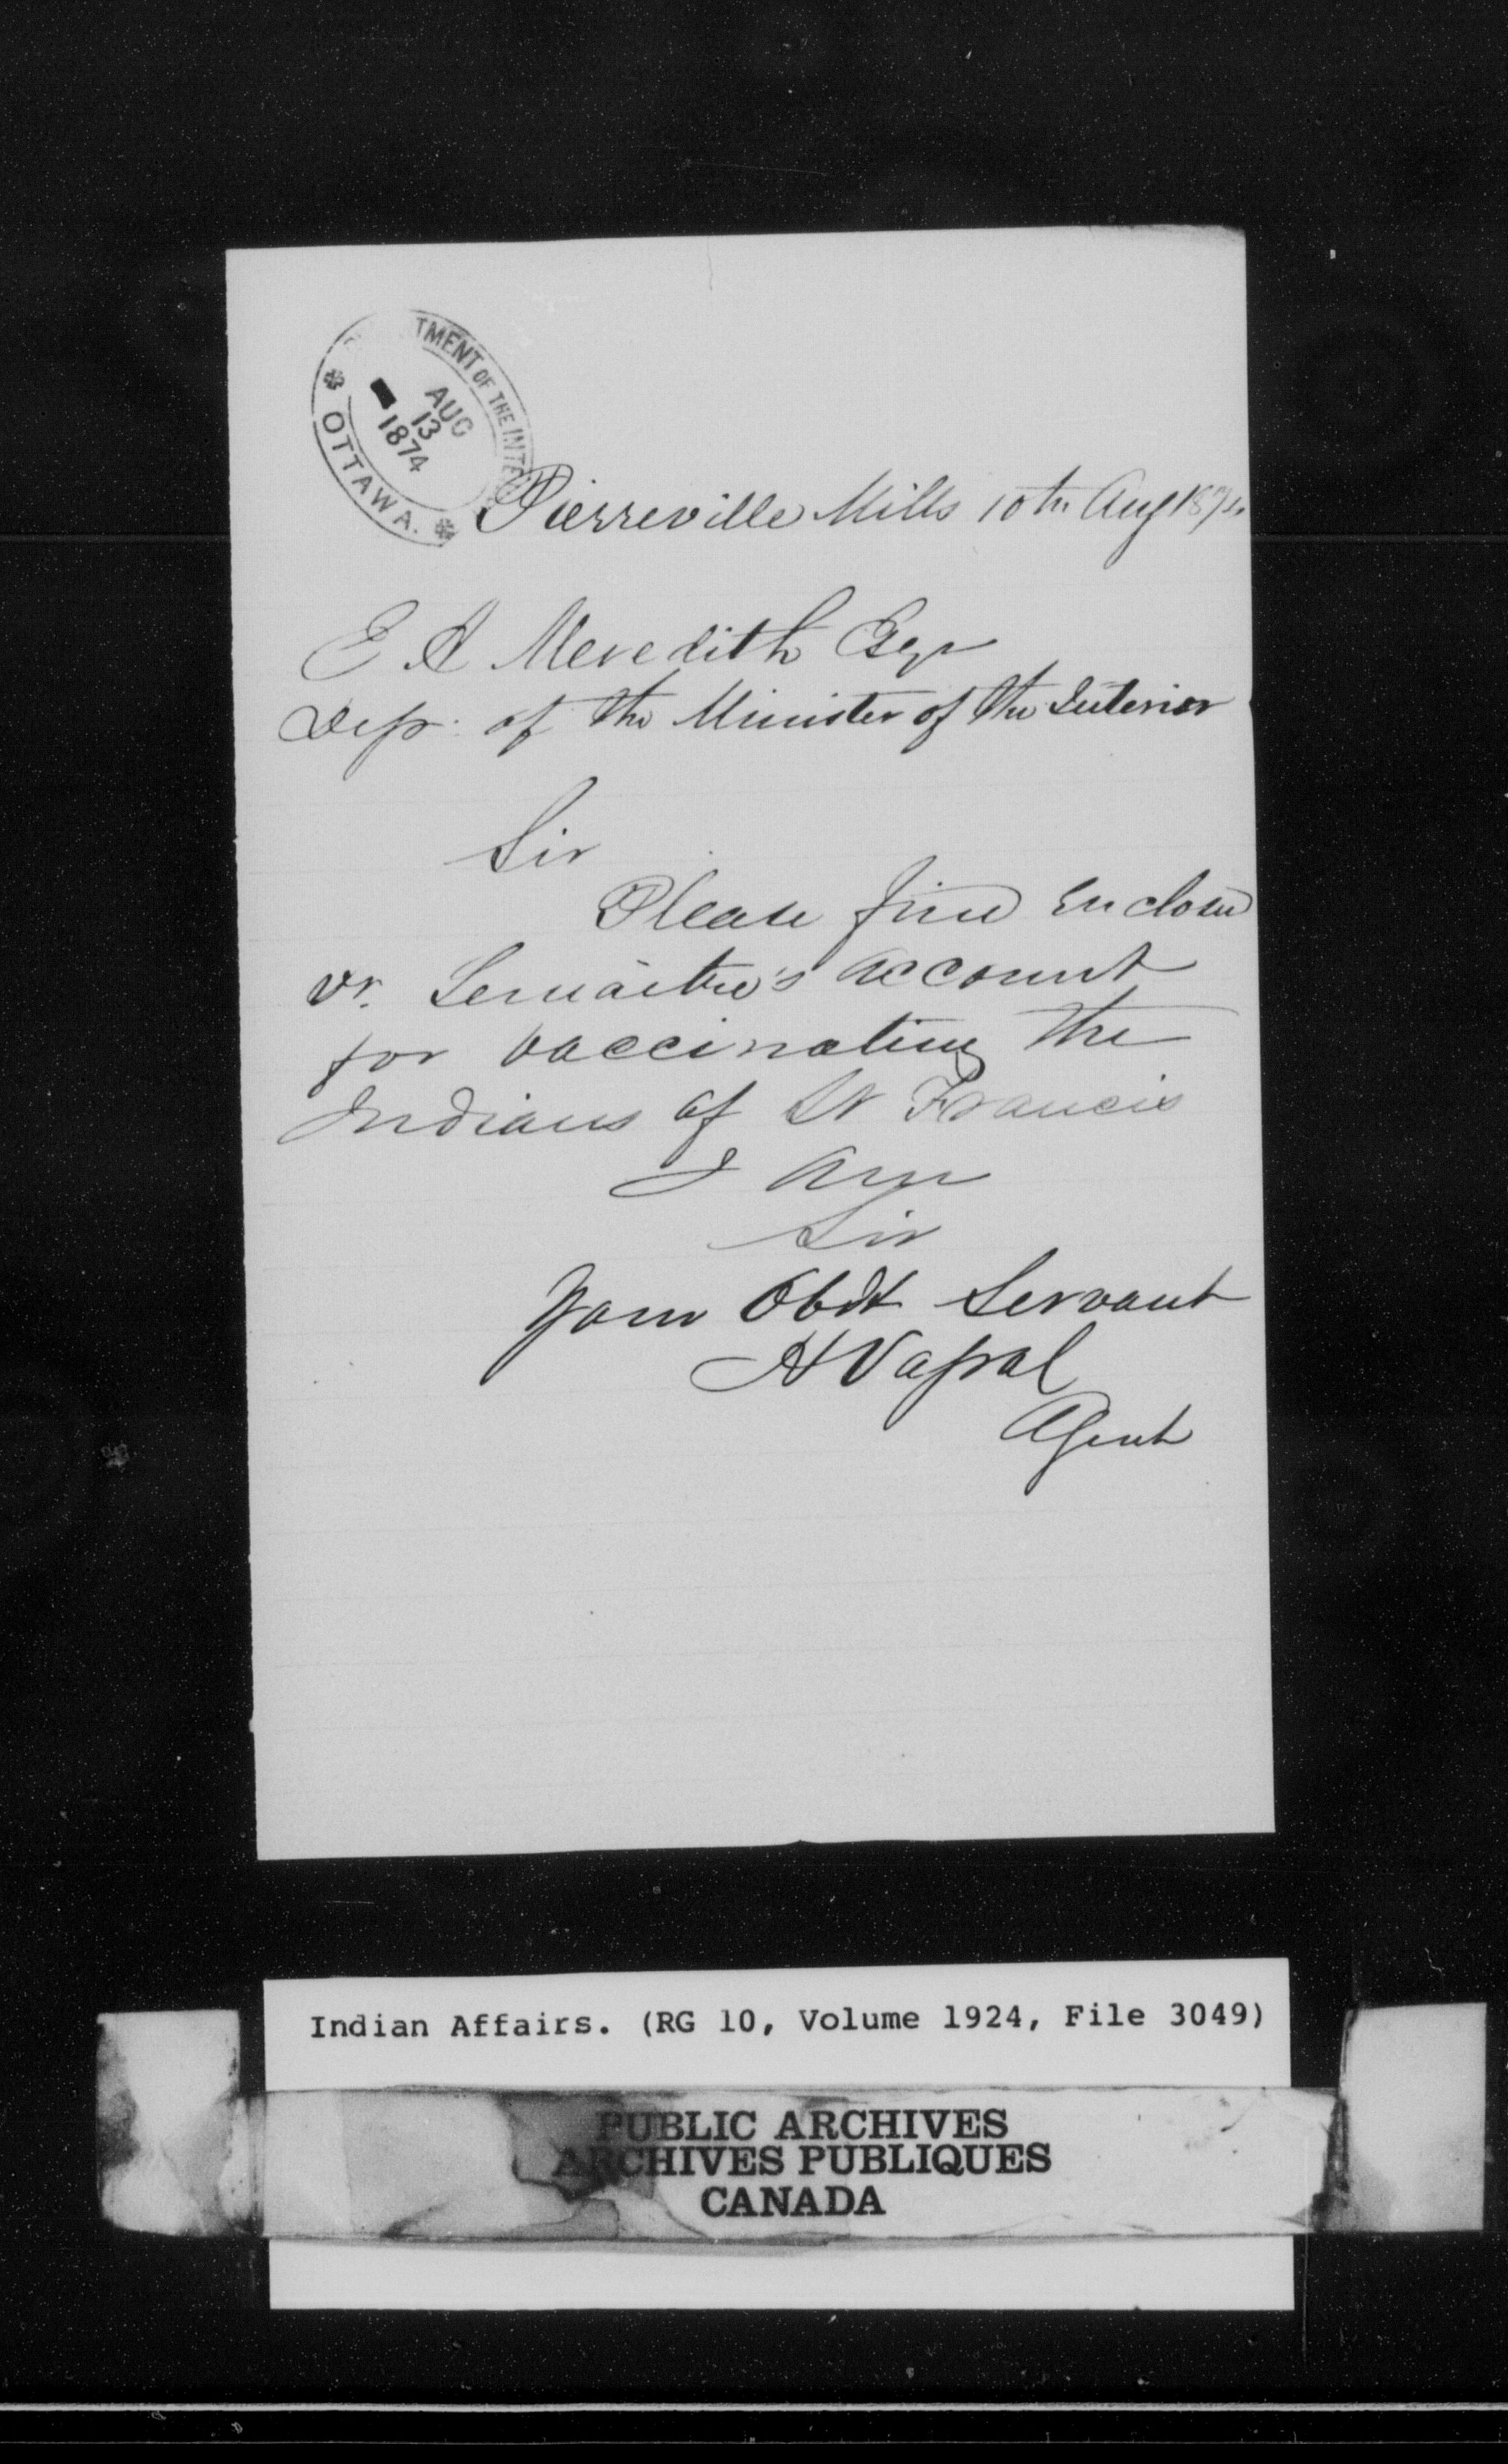 TMENT OF THE INTE
AUG
13
1874
OTTAWA.
Pierreville Mills 10th Aug 1874
E A Meredith Esqr
Dep. of the Minister of the Interior
Sir
Please find Enclosed
Dr. Lemaitre's account
for vaccinating the
Indians of St Francis
I am
Sir
Your Obdt Servant
H Vassal
Agent
Indian Affairs. (RG 10, Volume 1924, File 3049)
PUBLIC ARCHIVES
ARCHIVES PUBLIQUES
CANADA